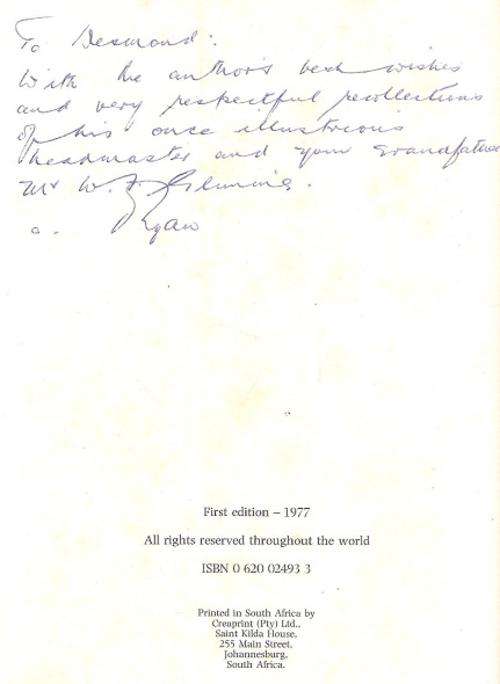 To Desmond:
With the author's best wishes
and very respectful recollections
of his once illustrious
headmaster and your Grandfather
Mr W. F.
First edition – 1977
All rights reserved throughout the world
ISBN 0 620 02493 3
Printed in South Africa by
Creaprint (Pty) Ltd.,
Saint Kilda House,
255 Main Street,
Johannesburg,
South Africa.